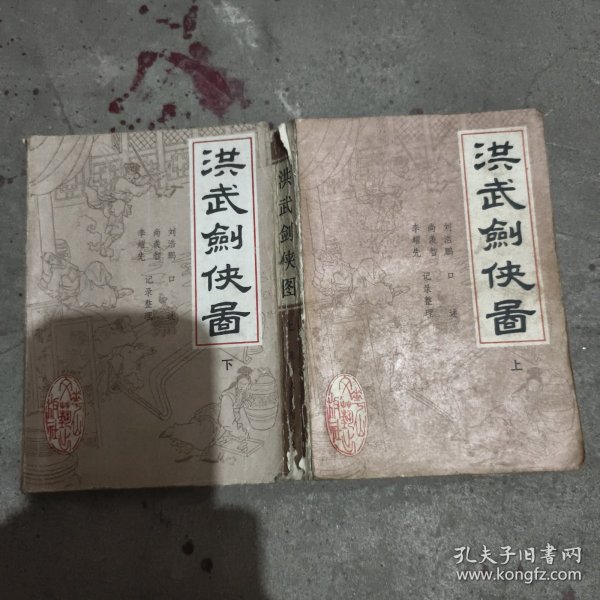 洪武劍俠圖
刘浩鹏 口述
尚羲智
李耀先 记录整理
下
洪武剑侠图
洪武劍俠圖
刘浩鹏 口述
尚羲智
李耀先 记录整理
上
孔夫子旧书网
www.kongfz.com